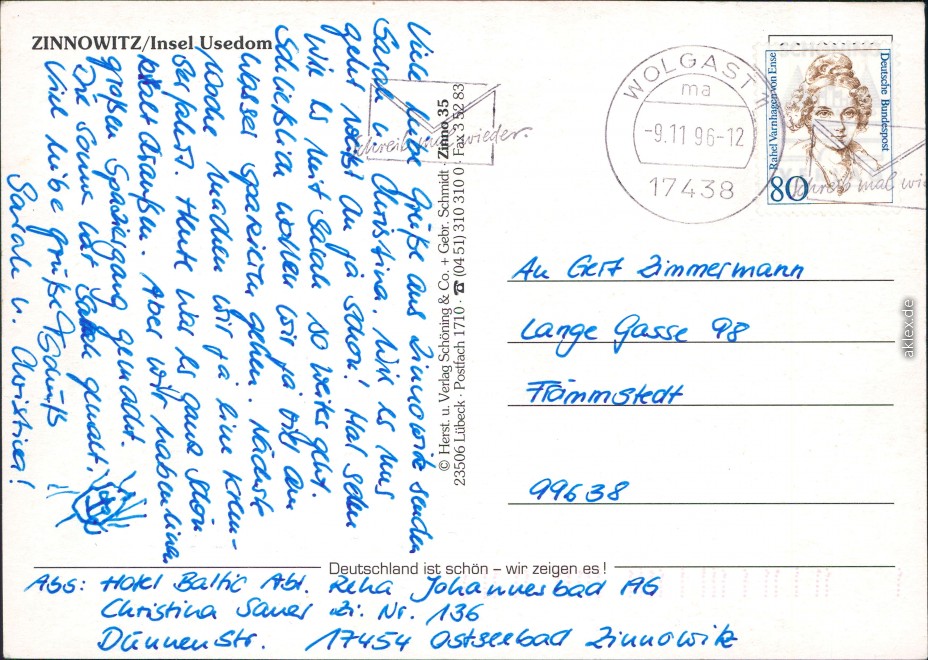 ZINNOWITZ/Insel Usedom
Viele liebe Grüße aus Zinnowitz senden
Sarah u. Christina. Wie es uns
geht weißt du ja schon! Mal sehen
wie es mit Sarah so weiter geht.
Schließlich wollen wir ja viel am
Wasser spazieren gehen. Nächste
Woche machen wir ja eine
Seefahrt. Heute war es ganz schön
kalt draußen. Aber wir haben einen
großen Spaziergang gemacht.
Die Sonne hat Sarah gemalt!
Viel liebe Grüße Tschüß
Sarah u. Christina!
© Herst. u. Verlag Schöning & Co. + Gebr. Schmidt · Zinno 35
23506 Lübeck · Postfach 1710 · ☎ (04 51) 310 310 0 · Fax 3 52 83
schreib mal wieder
WOLGAST
ma
-9.11 96-12
17438
schreib mal wie
Rahel Varnhagen von Ense
Deutsche Bundespost
80
An Gert Zimmermann
Lange Gasse 98
Frömmstedt
99638
Deutschland ist schön – wir zeigen es!
Abs: Hotel Baltic Abt. Reha Johannesbad AG
Christina Sauer Zi. Nr. 136
Dünnenstr. 17454 Ostseebad Zinnowitz
aklex.de